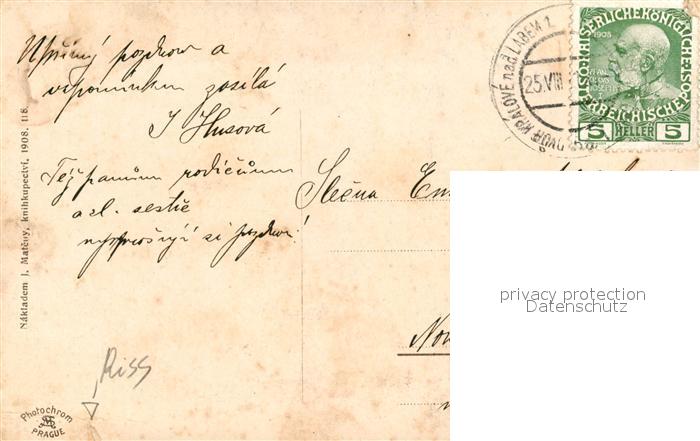 Upřímný pozdrav a
vzpomínku zasílá
J Husová
Též panům rodičům
a sl. sestře
nejsrdečnější pozdrav!
Slečna Em
Nov
Riss
Nákladem J. Matěny, knihkupectví, 1908. 118.
Photochrom
PRAGUE
DVŮR KRÁLOVÉ nad LABEM 1
25.VIII
KAISERLICHE KÖNIGLICHE
ÖSTERREICHISCHE POST
1908
5 HELLER 5
privacy protection
Datenschutz